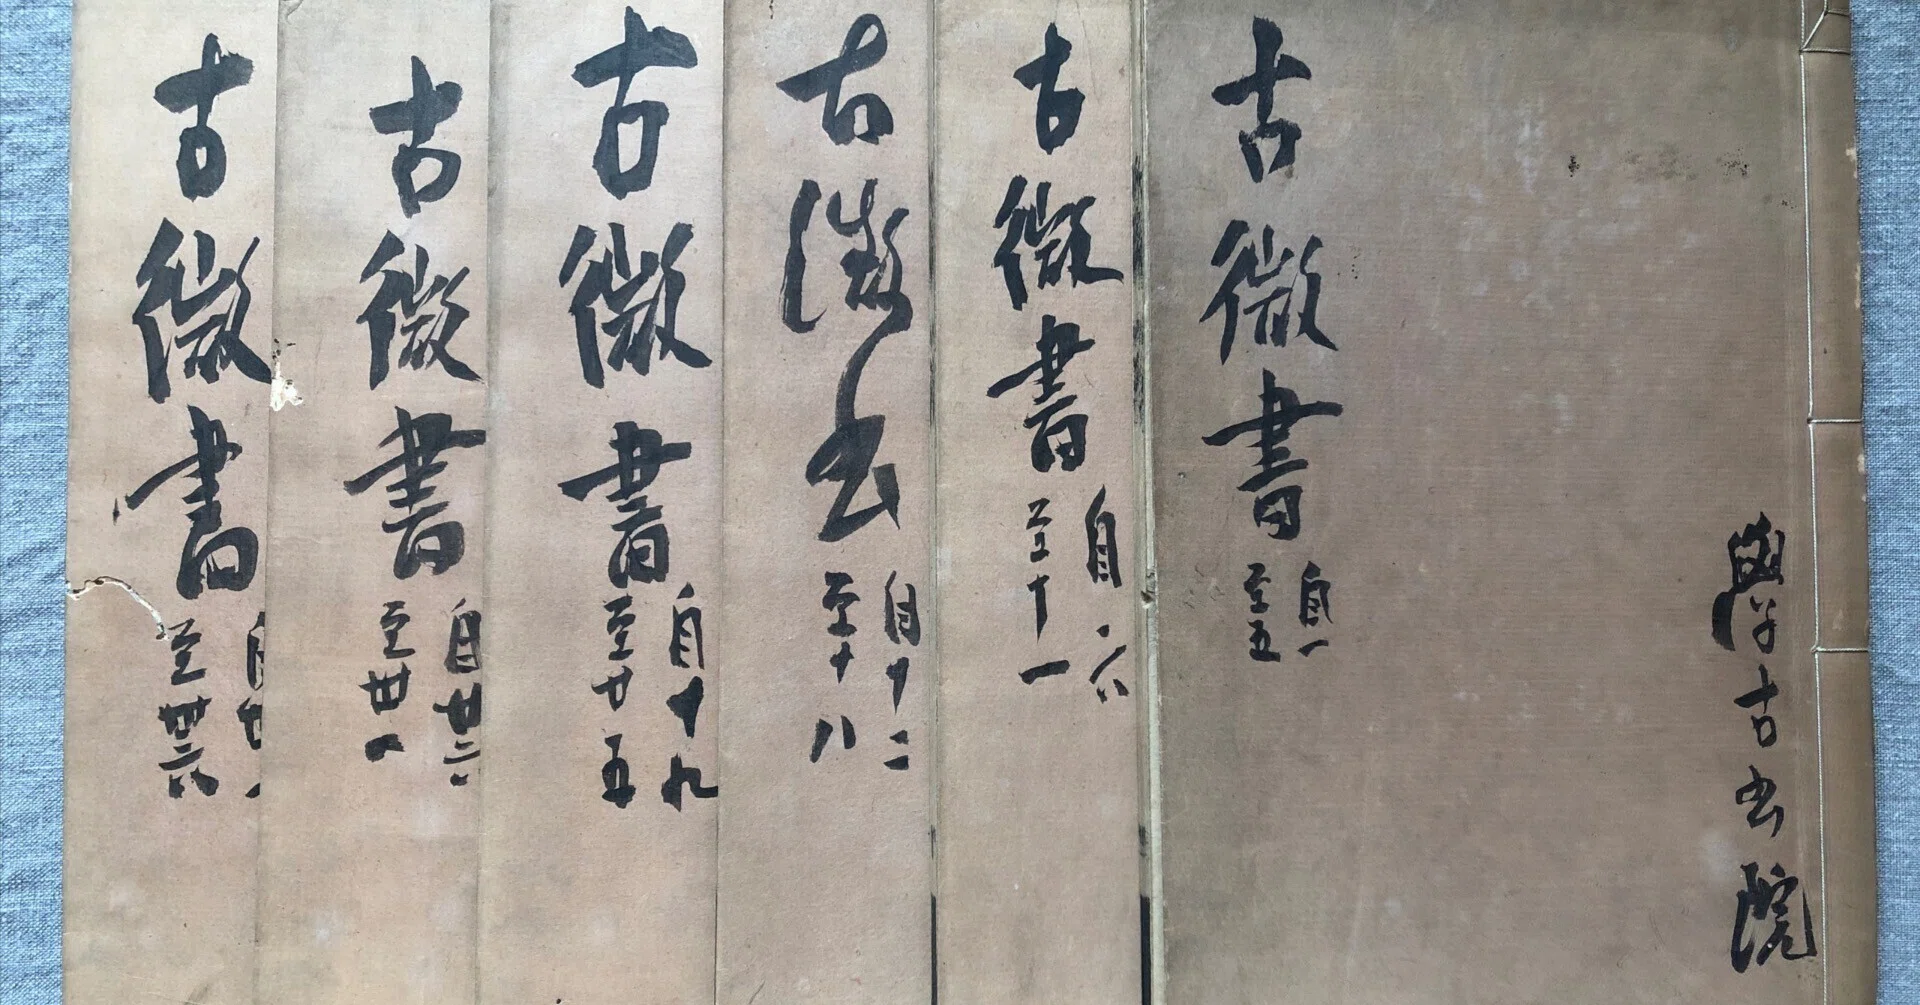 學古书院
古微書
自一
至五
古微書
自六
至十一
古微书
自十二
至十八
古微書
自十九
至廿五
古微書
自廿六
至卅一
古微書
自
至卅六